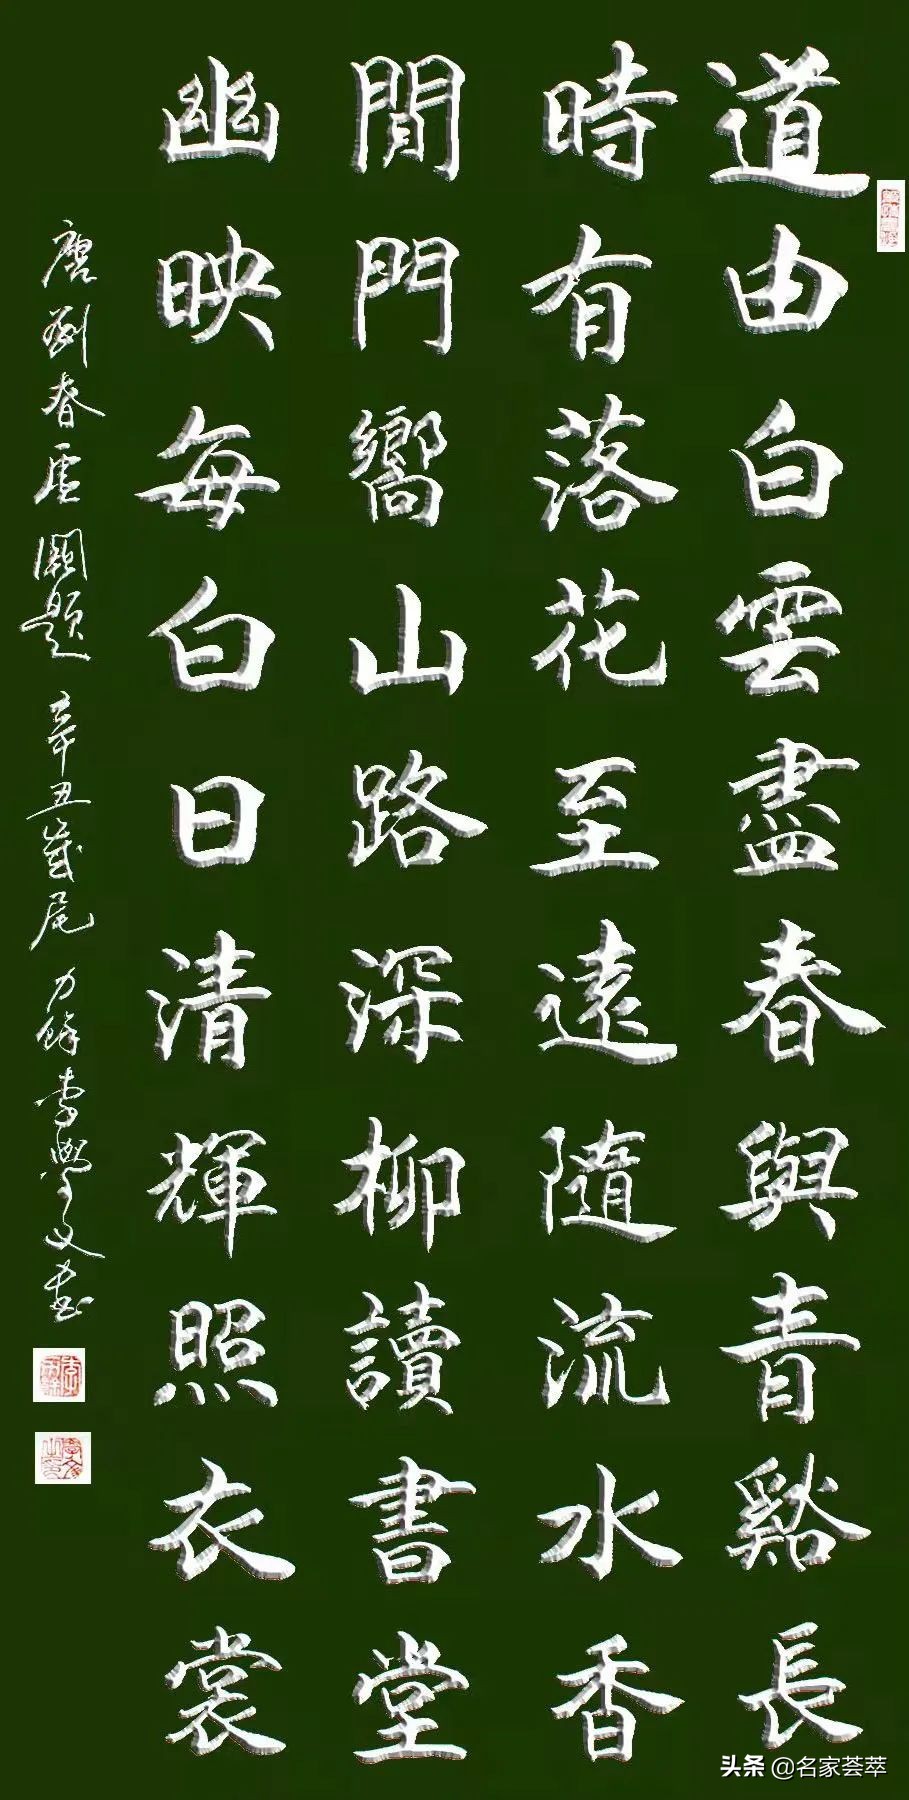 道由白雲盡春與青谿長
時有落花至遠隨流水香
閒門嚮山路深柳讀書堂
幽映每白日清輝照衣裳
唐劉眘虛闕題 辛丑歲尾 力餘李學文書
头条 @名家荟萃